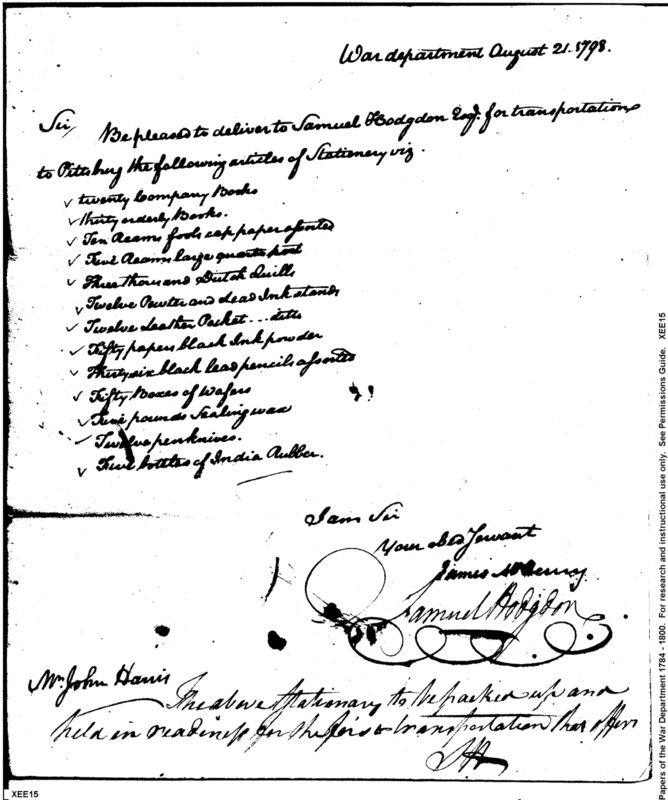 War department August 21. 1798.
Sir, Be pleased to deliver to Samuel Hodgdon Esqr. for transportation
to Pittsburg the following articles of Stationery viz.
✓ twenty Company Books
✓ thirty orderly Books.
✓ Ten Reams fools cap paper assorted
✓ Five Reams large quarto post
✓ Three thousand Dutch Quills
✓ Twelve Pewter and lead Ink stands
✓ Twelve Leather Pocket... ditto
✓ Fifty papers black Ink powder
✓ Thirty six black lead pencils assorted
✓ Fifty Boxes of Wafers
✓ Five pounds Sealing wax
✓ Twelve penknives.
✓ Five bottles of India Rubber.
I am Sir
Your obed Servant
James McHenry
Samuel Hodgdon
Mr. John Harris
The above Stationary to be packed up and
held in readiness for the first transportation that offers
SH
XEE15
Papers of the War Department 1784 - 1800. For research and instructional use only. See Permissions Guide. XEE15